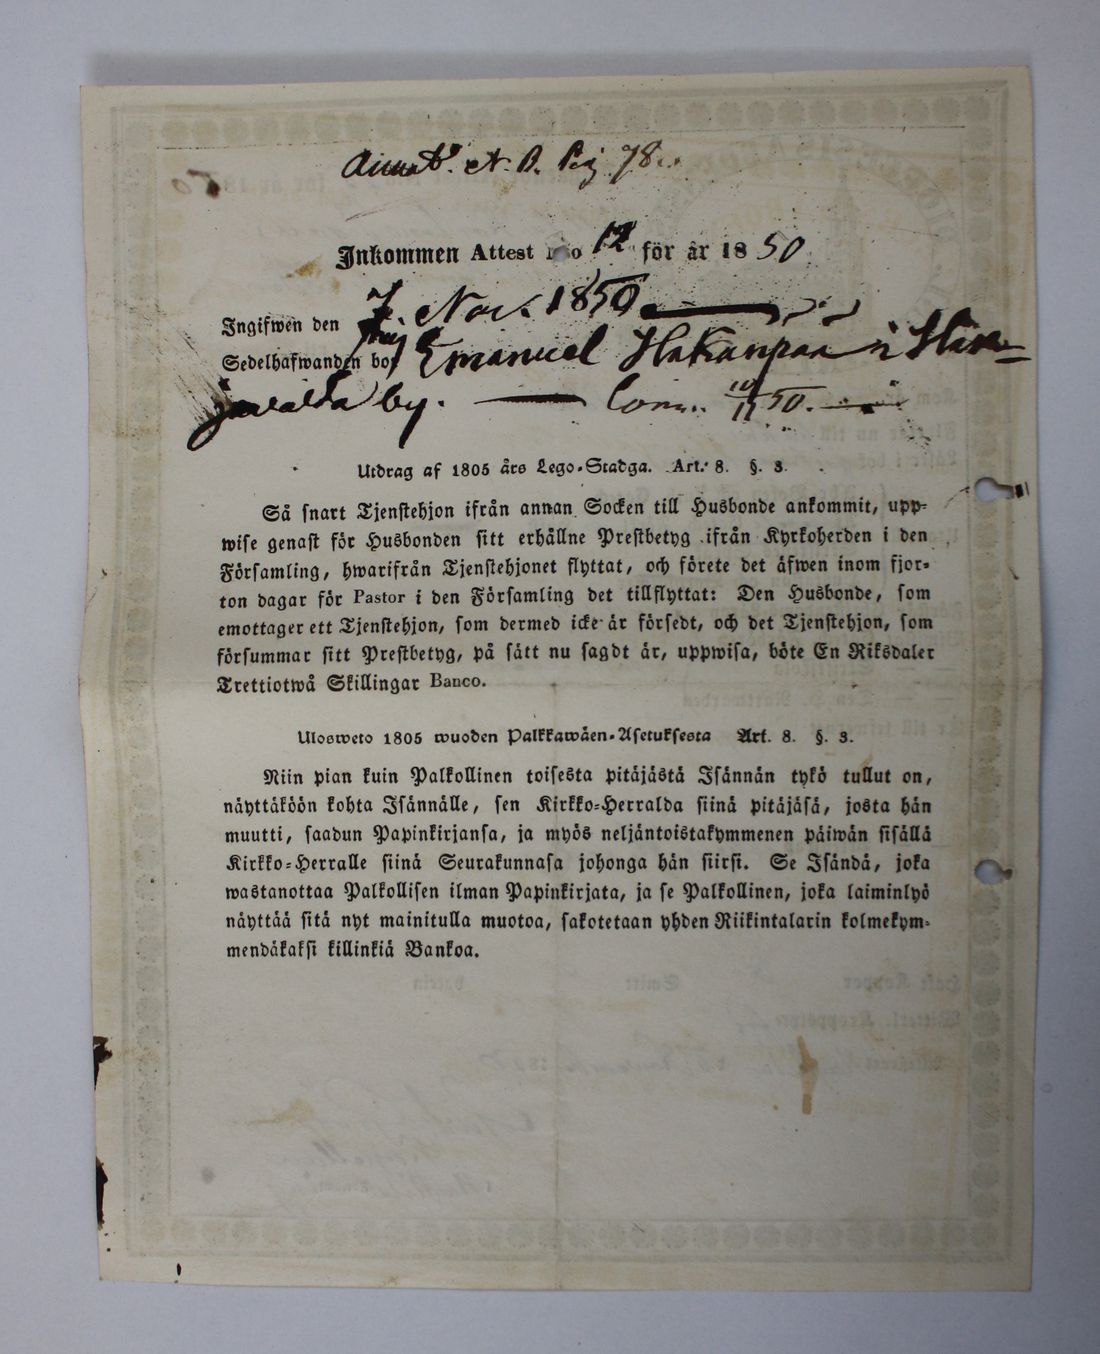 Annot. et N. B. Pag 78
Inkommen Attest No 12 för år 1850
Ingifwen den 7 Nov. 1850
Sedelhafwanden bor Emanuel Hakanpaa i
by. Comm. 10/11 50.
Utdrag af 1805 års Lego-Stadga. Art. 8. §. 3.
Så snart Tjenstehjon ifrån annan Socken till Husbonde ankommit, upp-
wise genast för Husbonden sitt erhållne Prestbetyg ifrån Kyrkoherden i den
Församling, hwarifrån Tjenstehjonet flyttat, och förete det äfwen inom fjor-
ton dagar för Pastor i den Församling det tillflyttat: Den Husbonde, som
emottager ett Tjenstehjon, som dermed icke är försedt, och det Tjenstehjon, som
försummar sitt Prestbetyg, på sätt nu sagdt är, uppwisa, böte En Riksdaler
Trettiotwå Skillingar Banco.
Ulosweto 1805 wuoden Palkkawäen-Asetuksesta Art. 8. §. 3.
Niin pian kuin Palkollinen toisesta pitäjästä Isännän tykö tullut on,
näyttäköön kohta Isännälle, sen Kirkko-Herralda siinä pitäjäsä, josta hän
muutti, saadun Papinkirjansa, ja myös neljäntoistakymmenen päiwän sisällä
Kirkko-Herralle siinä Seurakunnasa johonga hän siirsi. Se Isändä, joka
wastanottaa Palkollisen ilman Papinkirjata, ja se Palkollinen, joka laiminlyö
näyttää sitä nyt mainitulla muotoa, sakotetaan yhden Riikintalarin kolmekym-
mendäkaksi killinkiä Bankoa.